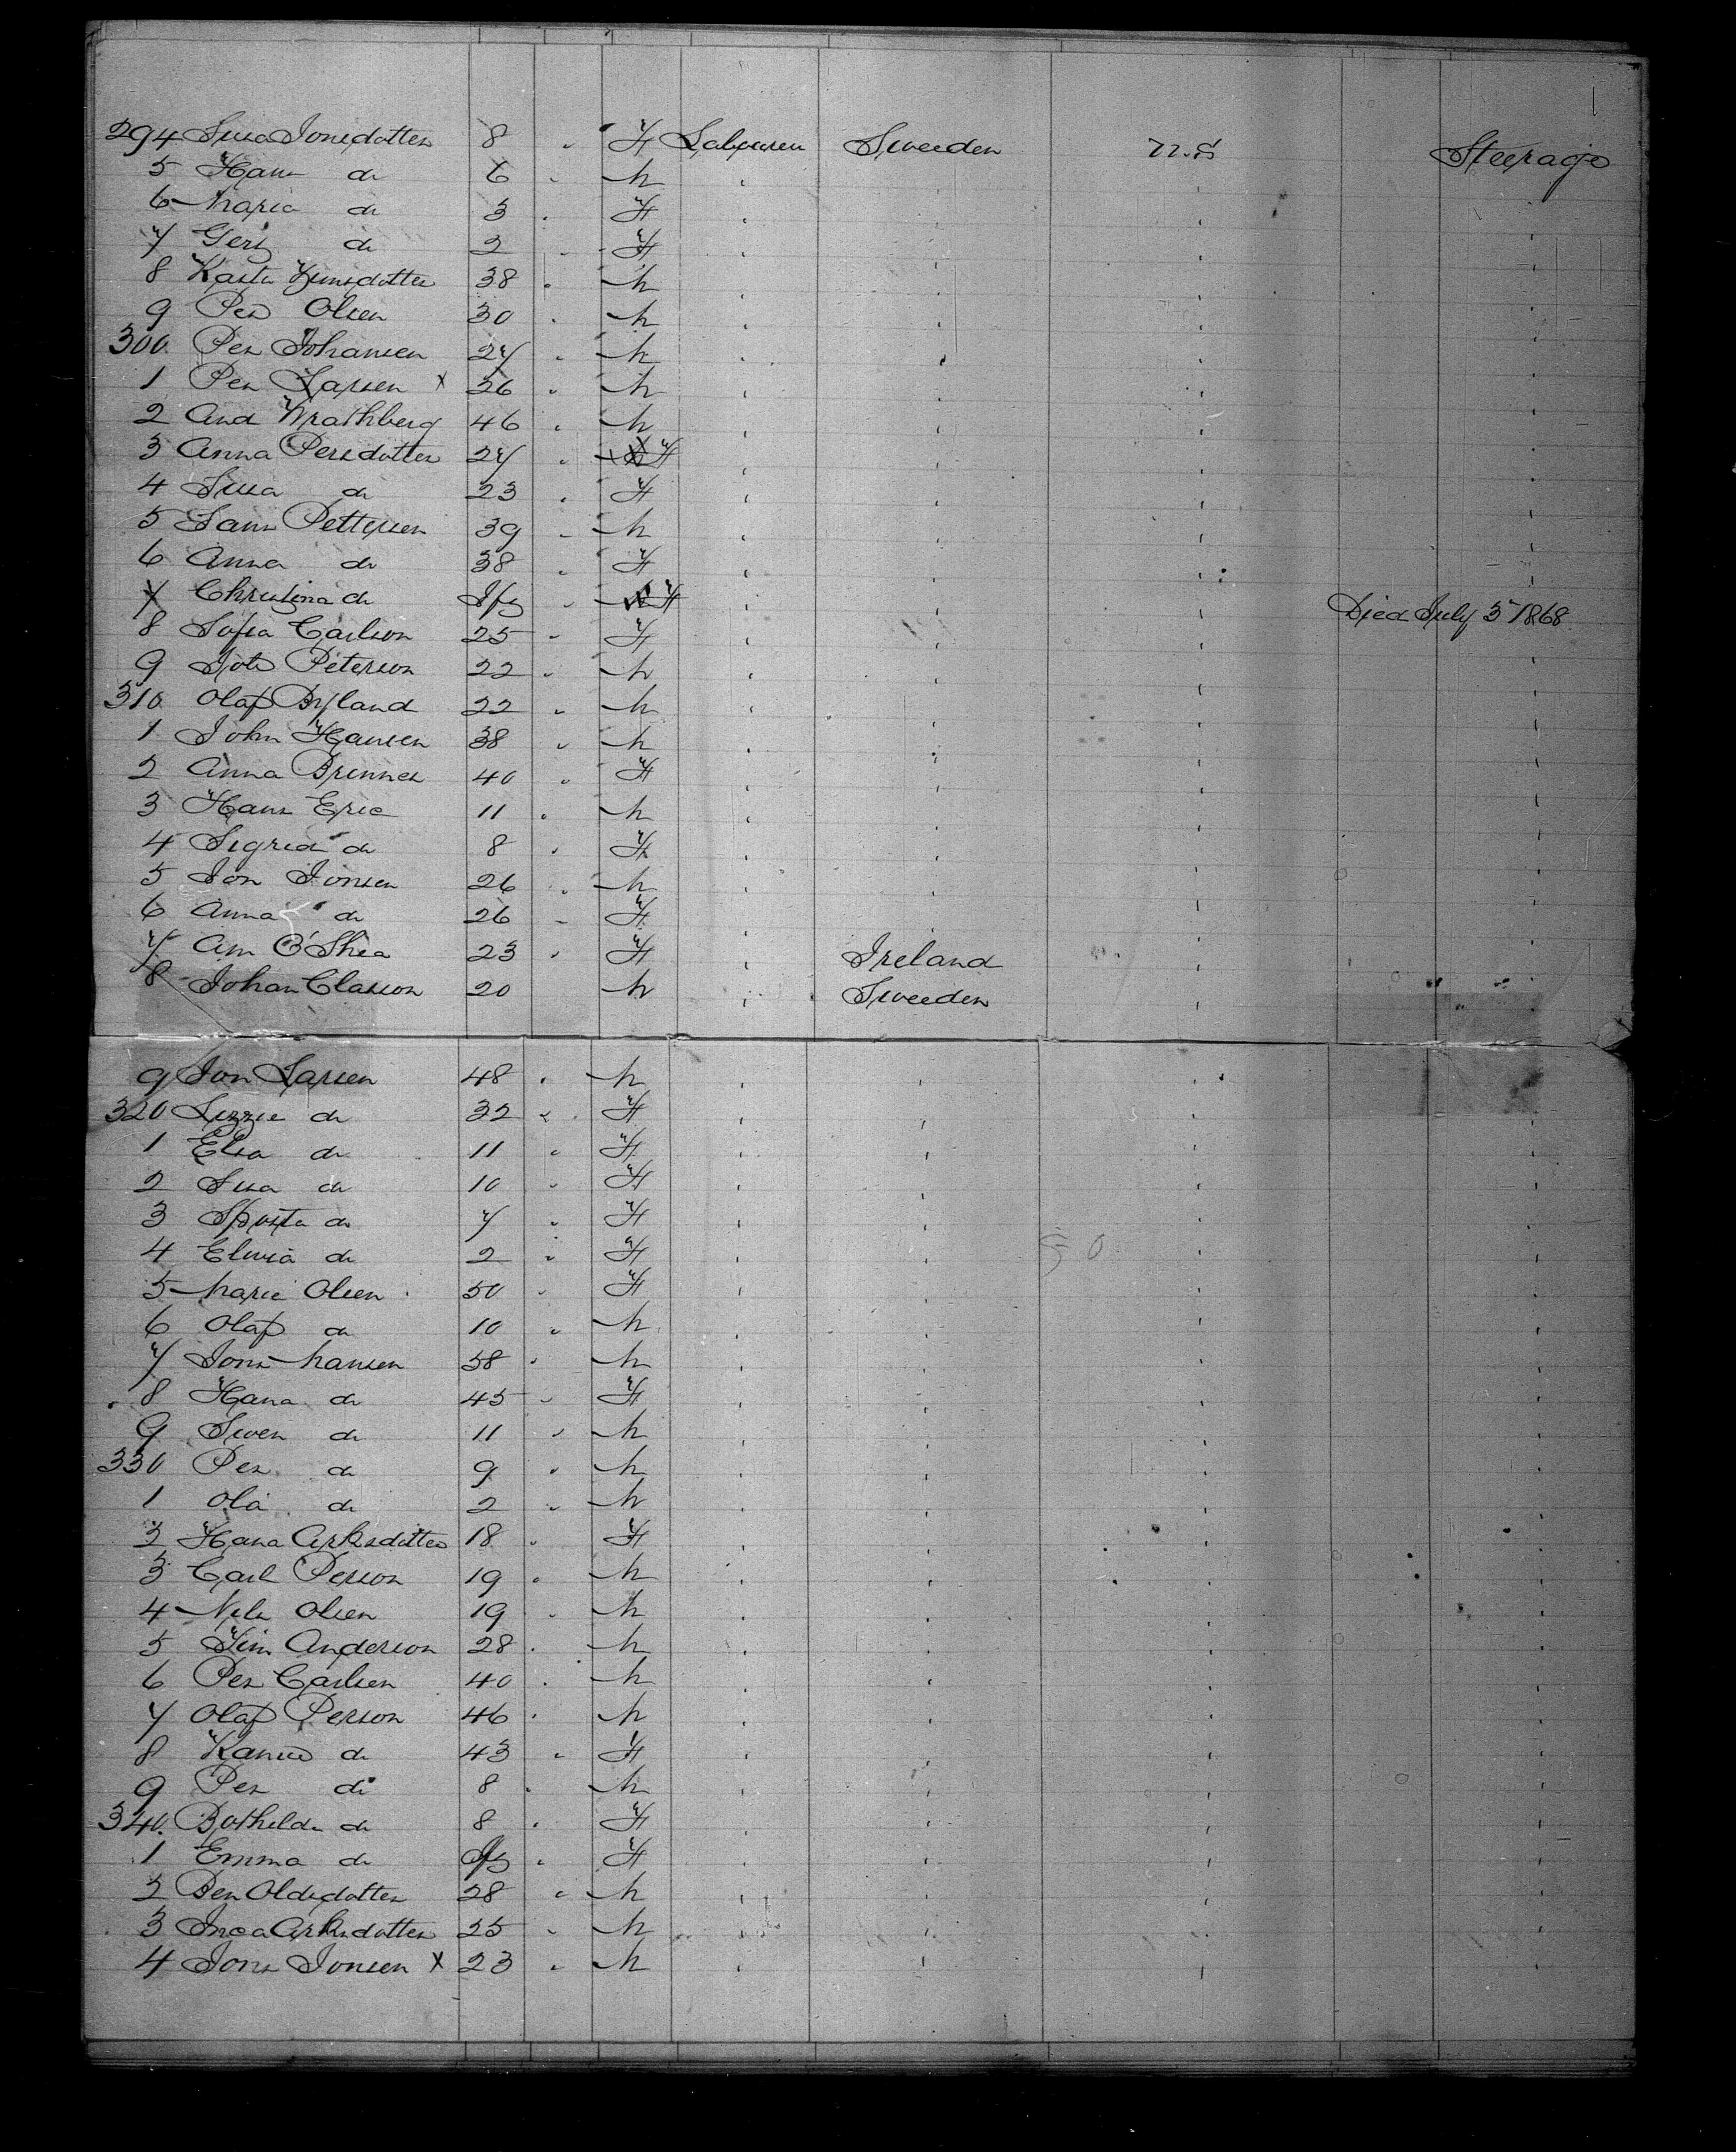 294 Sissa Jonsdotter 8 " F Labourer Sweeden U.S. Steerage
5 Hans do 6 " M " " " "
6 Maria do 3 " F " " " "
7 do 2 " F " " " "
8 Kasta 38 " M " " " "
9 Per Olsen 30 " M " " " "
300. Per Johansen 27 " M " " " "
1 Per Larsen x 26 " M " " " "
2 And Wrathberg 46 " M " " " "
3 Anna Persdotter 27 " F " " " "
4 Sissa do 23 " F " " " "
5 Lars Pettersen 39 " M " " " "
6 Anna do 38 " F " " " "
7 Christina do Inf " F " " " Died July 3 1868
8 Sofia Carlson 25 " F " " " "
9 Peterson 22 " M " " " "
310. Olaf Byland 22 " M " " " "
1 John Hansen 38 " M " " " "
2 Anna Brenner 40 " F " " " "
3 Hans Eric 11 " M " " " "
4 Sigrid do 8 " F " " " "
5 Jon Jonsen 26 " M " " " "
6 Anna do 26 " F " " " "
7 Ann O'Shea 23 " F " Ireland " "
8 Johan Classon 20 M " Sweeden " "
9 Jon Larsen 48 " M " " " "
320 Lizzie do 32 " F " " " "
1 Elsa do 11 " F " " " "
2 Sissa do 10 " F " " " "
3 do 7 " F " " " "
4 do 2 " F " " " "
5 Marie Olsen 50 " F " " " "
6 Olaf do 10 " M " " " "
7 Jons Mansen 58 " M " " " "
8 Hana do 45 " F " " " "
9 Swen do 11 " M " " " "
330 Per do 9 " M " " " "
1 Ola do 2 " M " " " "
2 Hana Arksdotter 18 " F " " " "
3 Carl Person 19 " M " " " "
4 Nels Olsen 19 " M " " " "
5 Jim Anderson 28 " M " " " "
6 Per Carlsen 40 " M " " " "
7 Olaf Person 46 " M " " " "
8 do 43 " F " " " "
9 Per do 8 " M " " " "
340. Bothilda do 8 " F " " " "
1 Emma do Inf " F " " " "
2 Ben Oldsdotter 28 " M " " " "
3 Arksdotter 25 " M " " " "
4 Jons Jonsen x 23 " M " " " "